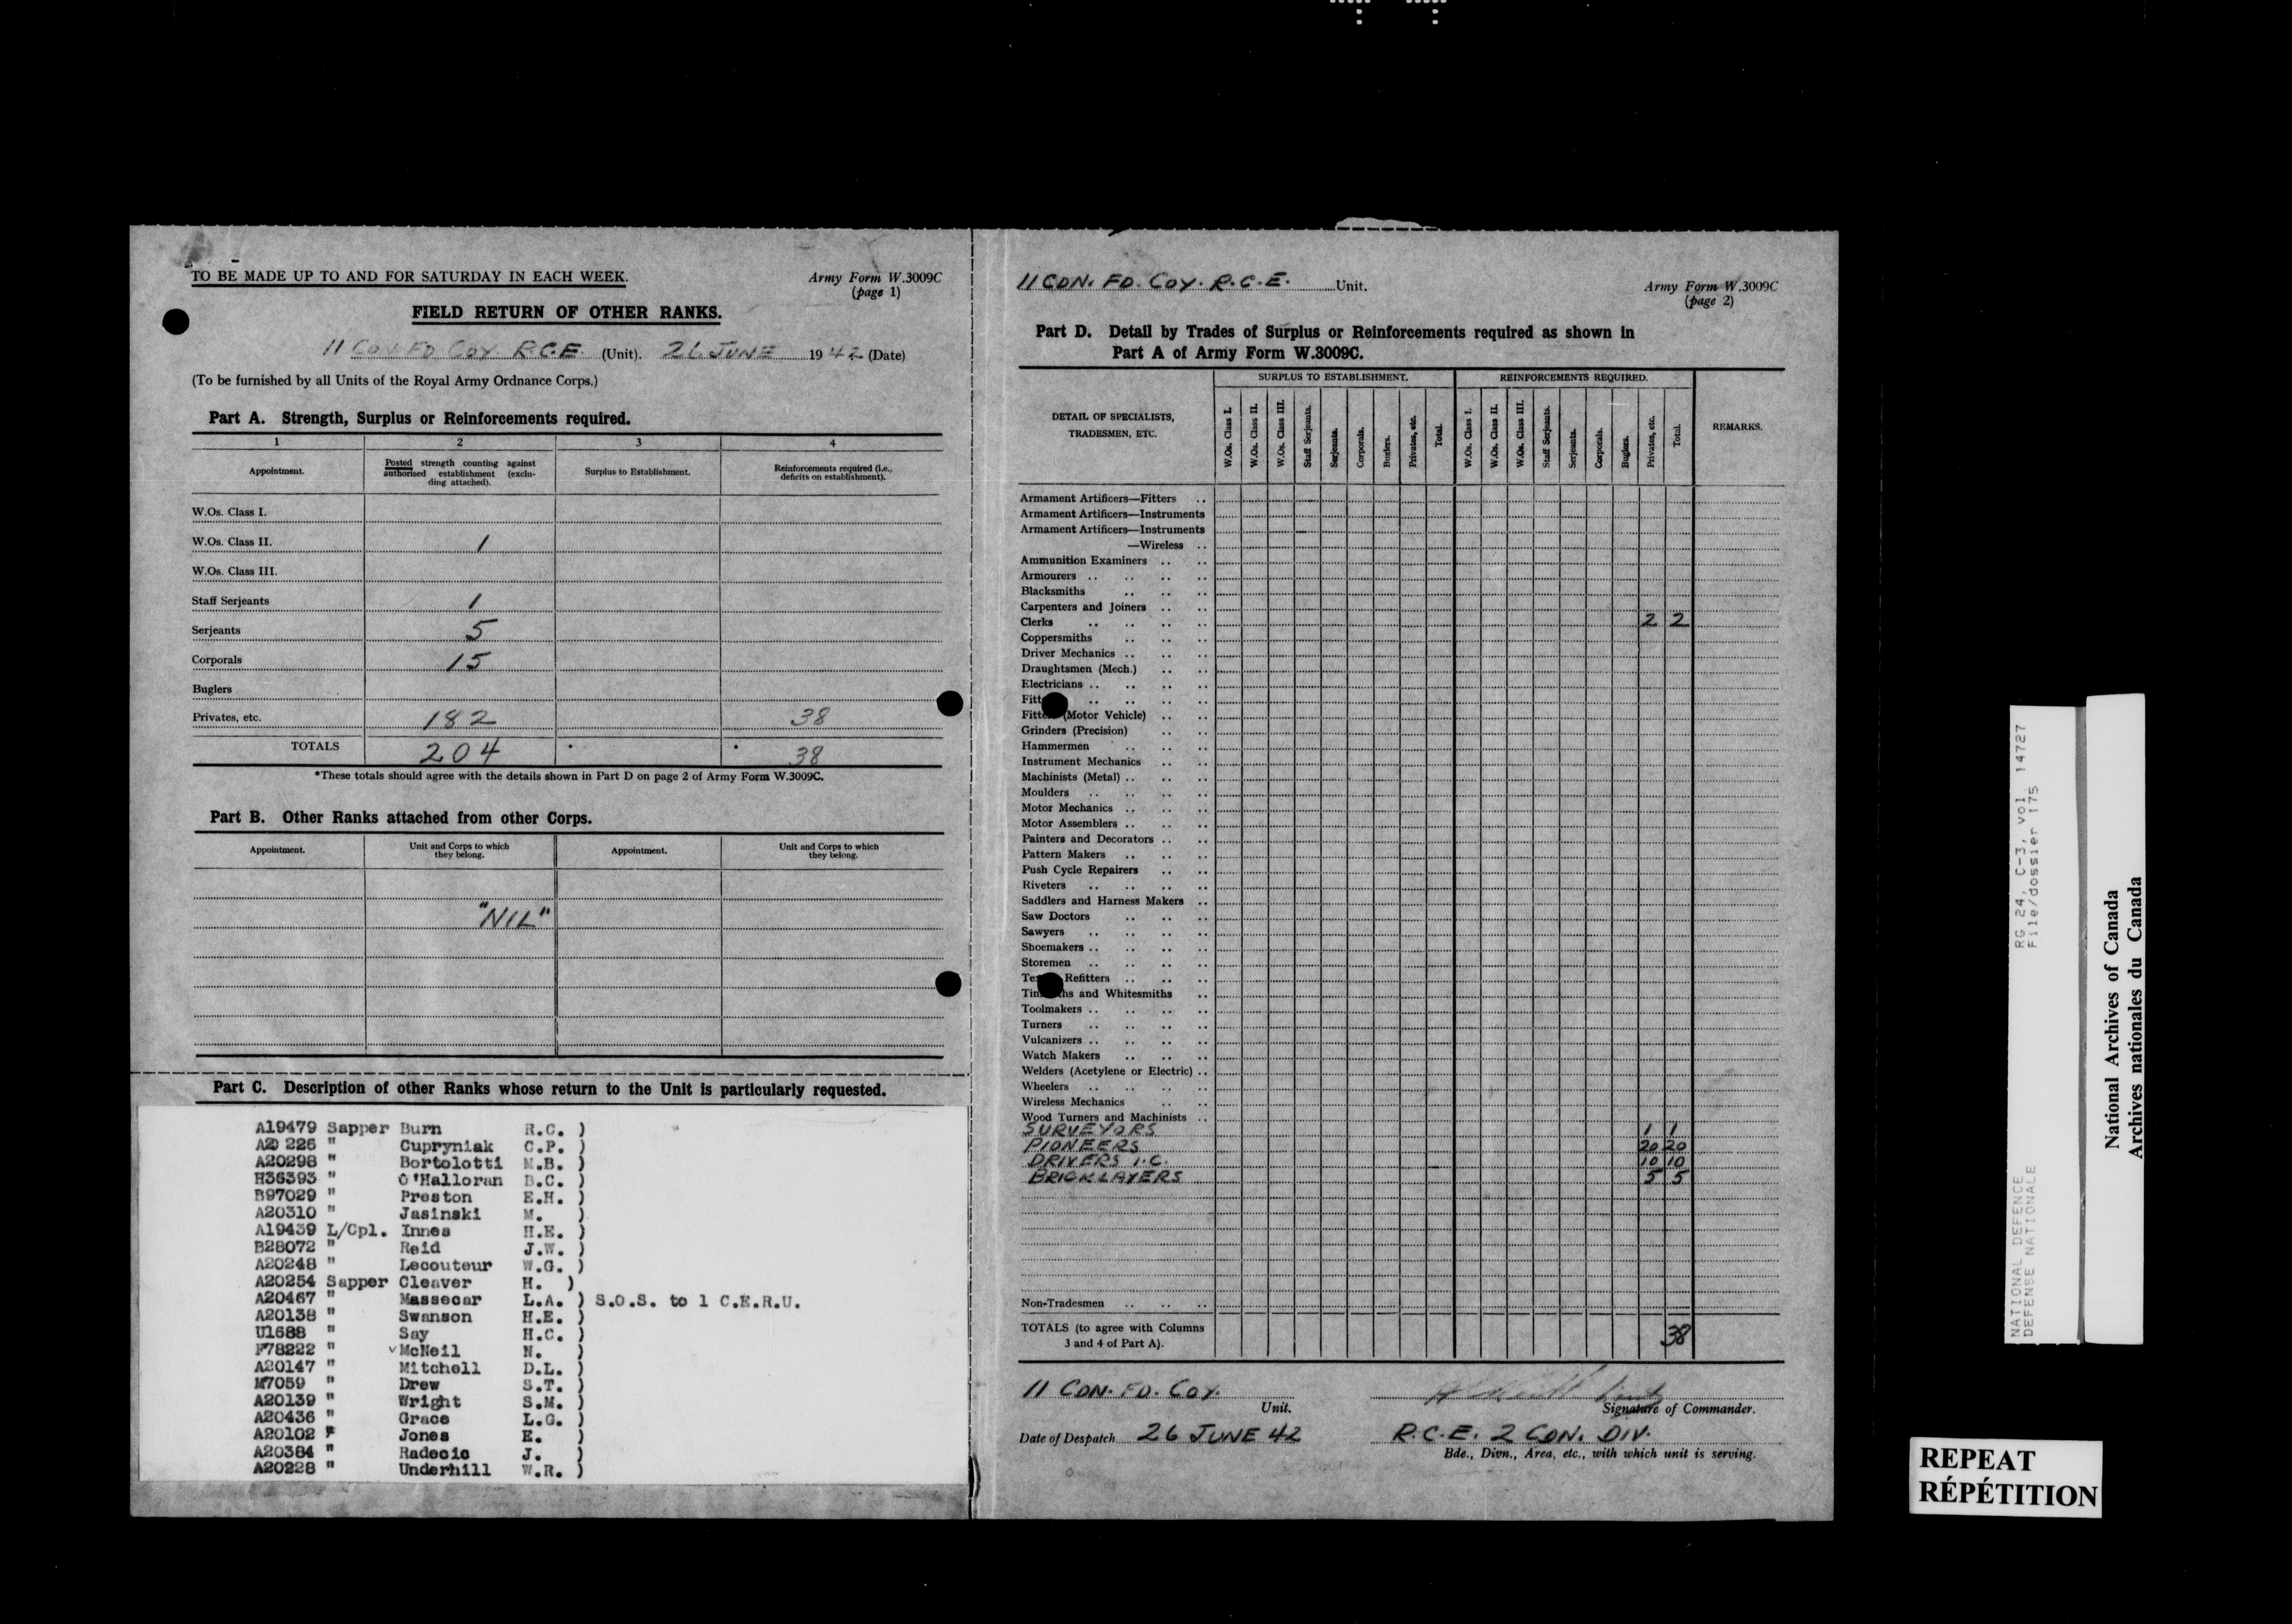 TO BE MADE UP TO AND FOR SATURDAY IN EACH WEEK.
Army Form W.3009C
(page 1)
FIELD RETURN OF OTHER RANKS.
11 FD COY R.C.E. (Unit). JUNE 1942 (Date)
(To be furnished by all Units of the Royal Army Ordnance Corps.)
Part A. Strength, Surplus or Reinforcements required.
1 2 3 4
Appointment. Posted strength counting against authorised establishment (excluding attached). Surplus to Establishment. Reinforcements required (i.e., deficits on establishment).
W.Os. Class I.
W.Os. Class II. 1
W.Os. Class III.
Staff Serjeants 1
Serjeants 5
Corporals 15
Buglers
Privates, etc. 182 38
TOTALS 204 * * 38
*These totals should agree with the details shown in Part D on page 2 of Army Form W.3009C.
Part B. Other Ranks attached from other Corps.
Appointment. Unit and Corps to which they belong. Appointment. Unit and Corps to which they belong.
"NIL"
Part C. Description of other Ranks whose return to the Unit is particularly requested.
A19479 Sapper Burn R.C. )
A20226 " Cupryniak C.P. )
A20298 " Bortolotti M.B. )
H36393 " O'Halloran B.C. )
B97029 " Preston E.H. )
A20310 " Jasinski M. )
A19439 L/Cpl. Innes H.E. )
B28072 " Reid J.W. )
A20248 " Lecouteur W.G. )
A20254 Sapper Cleaver H. )
A20467 " Massecar L.A. ) S.O.S. to 1 C.E.R.U.
A20138 " Swanson H.E. )
U1688 " Say H.C. )
F78222 " McNeil N. )
A20147 " Mitchell D.L. )
M7059 " Drew S.T. )
A20139 " Wright S.M. )
A20436 " Grace L.G. )
A20102 " Jones E. )
A20384 " Radecic J. )
A20228 " Underhill W.R. )
11 CDN. FD. COY. R.C.E. Unit.
Army Form W.3009C
(page 2)
Part D. Detail by Trades of Surplus or Reinforcements required as shown in
Part A of Army Form W.3009C.
DETAIL OF SPECIALISTS, TRADESMEN, ETC. SURPLUS TO ESTABLISHMENT. REINFORCEMENTS REQUIRED. REMARKS.
W.Os. Class I. W.Os. Class II. W.Os. Class III. Staff Serjeants. Serjeants. Corporals. Buglers. Privates, etc. Total. W.Os. Class I. W.Os. Class II. W.Os. Class III. Staff Serjeants. Serjeants. Corporals. Buglers. Privates, etc. Total.
Armament Artificers—Fitters ..
Armament Artificers—Instruments
Armament Artificers—Instruments
—Wireless ..
Ammunition Examiners .. ..
Armourers .. .. .. ..
Blacksmiths .. .. ..
Carpenters and Joiners .. ..
Clerks .. .. .. .. 2 2
Coppersmiths .. .. ..
Driver Mechanics .. .. ..
Draughtsmen (Mech.) .. ..
Electricians .. .. .. ..
Fitt .. .. ..
Fitte (Motor Vehicle) .. ..
Grinders (Precision) .. ..
Hammermen .. .. ..
Instrument Mechanics .. ..
Machinists (Metal) .. .. ..
Moulders .. .. .. ..
Motor Mechanics .. .. ..
Motor Assemblers .. .. ..
Painters and Decorators .. ..
Pattern Makers .. .. ..
Push Cycle Repairers .. ..
Riveters .. .. .. ..
Saddlers and Harness Makers ..
Saw Doctors .. .. ..
Sawyers .. .. .. ..
Shoemakers .. .. .. ..
Storemen .. .. .. ..
Te Refitters .. .. ..
Tin hs and Whitesmiths ..
Toolmakers .. .. .. ..
Turners .. .. .. ..
Vulcanizers .. .. .. ..
Watch Makers .. .. ..
Welders (Acetylene or Electric) ..
Wheelers .. .. .. ..
Wireless Mechanics .. ..
Wood Turners and Machinists ..
SURVEYORS 1 1
PIONEERS 20 20
DRIVERS I.C. 10 10
BRICKLAYERS 5 5
Non-Tradesmen .. .. ..
TOTALS (to agree with Columns
3 and 4 of Part A). 38
11 CDN. FD. COY.
Unit. Signature of Commander.
Date of Despatch 26 JUNE 42 R.C.E. 2 CDN. DIV.
Bde., Divn., Area, etc., with which unit is serving.
NATIONAL DEFENCE RG 24, C-3, vol. 14727
DEFENSE NATIONALE File/dossier 175
National Archives of Canada
Archives nationales du Canada
REPEAT
RÉPÉTITION